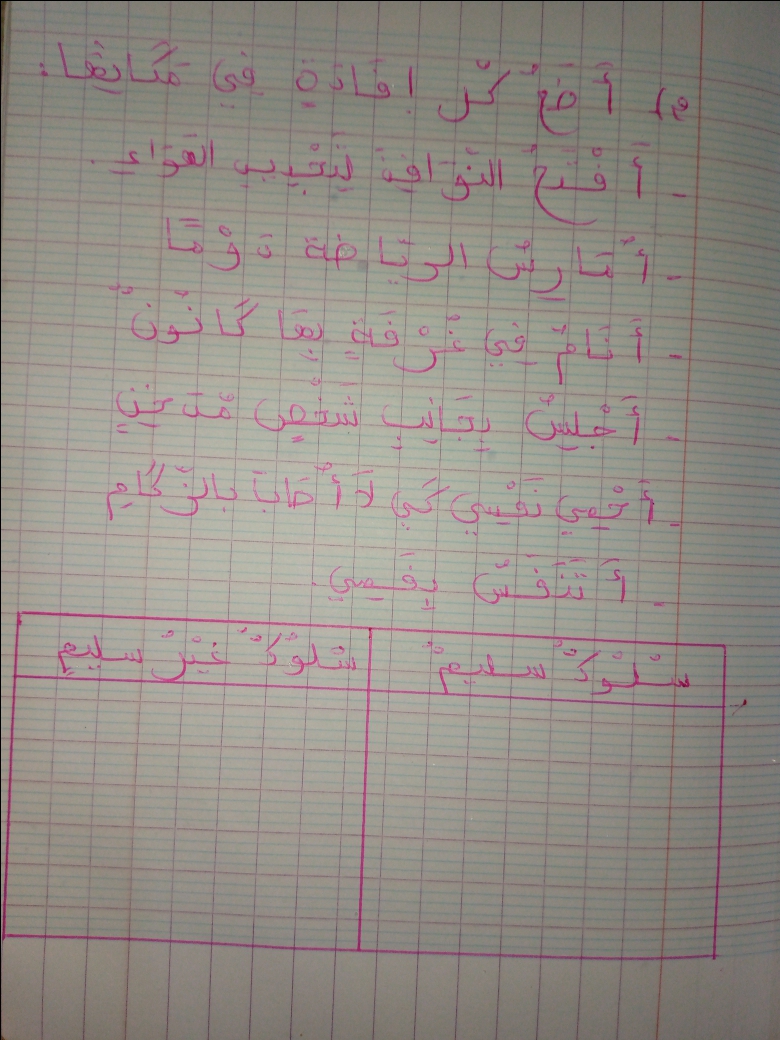 م) أَضَعُ كُلّ إفَادَةٍ فِي مَكَانِهَا:
- أَفْتَحُ النَّوَافِذَ لِتَجْدِيدِ الهَوَاءِ.
- أُمَارِسُ الريَاضَة دَوْمًا
- أَنَامُ فِي غُرْفَةٍ بِهَا كَانُونٌ
- أَجْلِسُ بِجَانِبِ شَخْصٍ مُدَخِنٍ
- أَحْمِي نَفْسِي كَيْ لاَ أُصَابَ بالزُّكَامِ
- أَتَنَفَّسُ بِفَمِي.
سُلُوكٌ سليمٌ
سُلوكٌ غَيْرُ سليمٍ